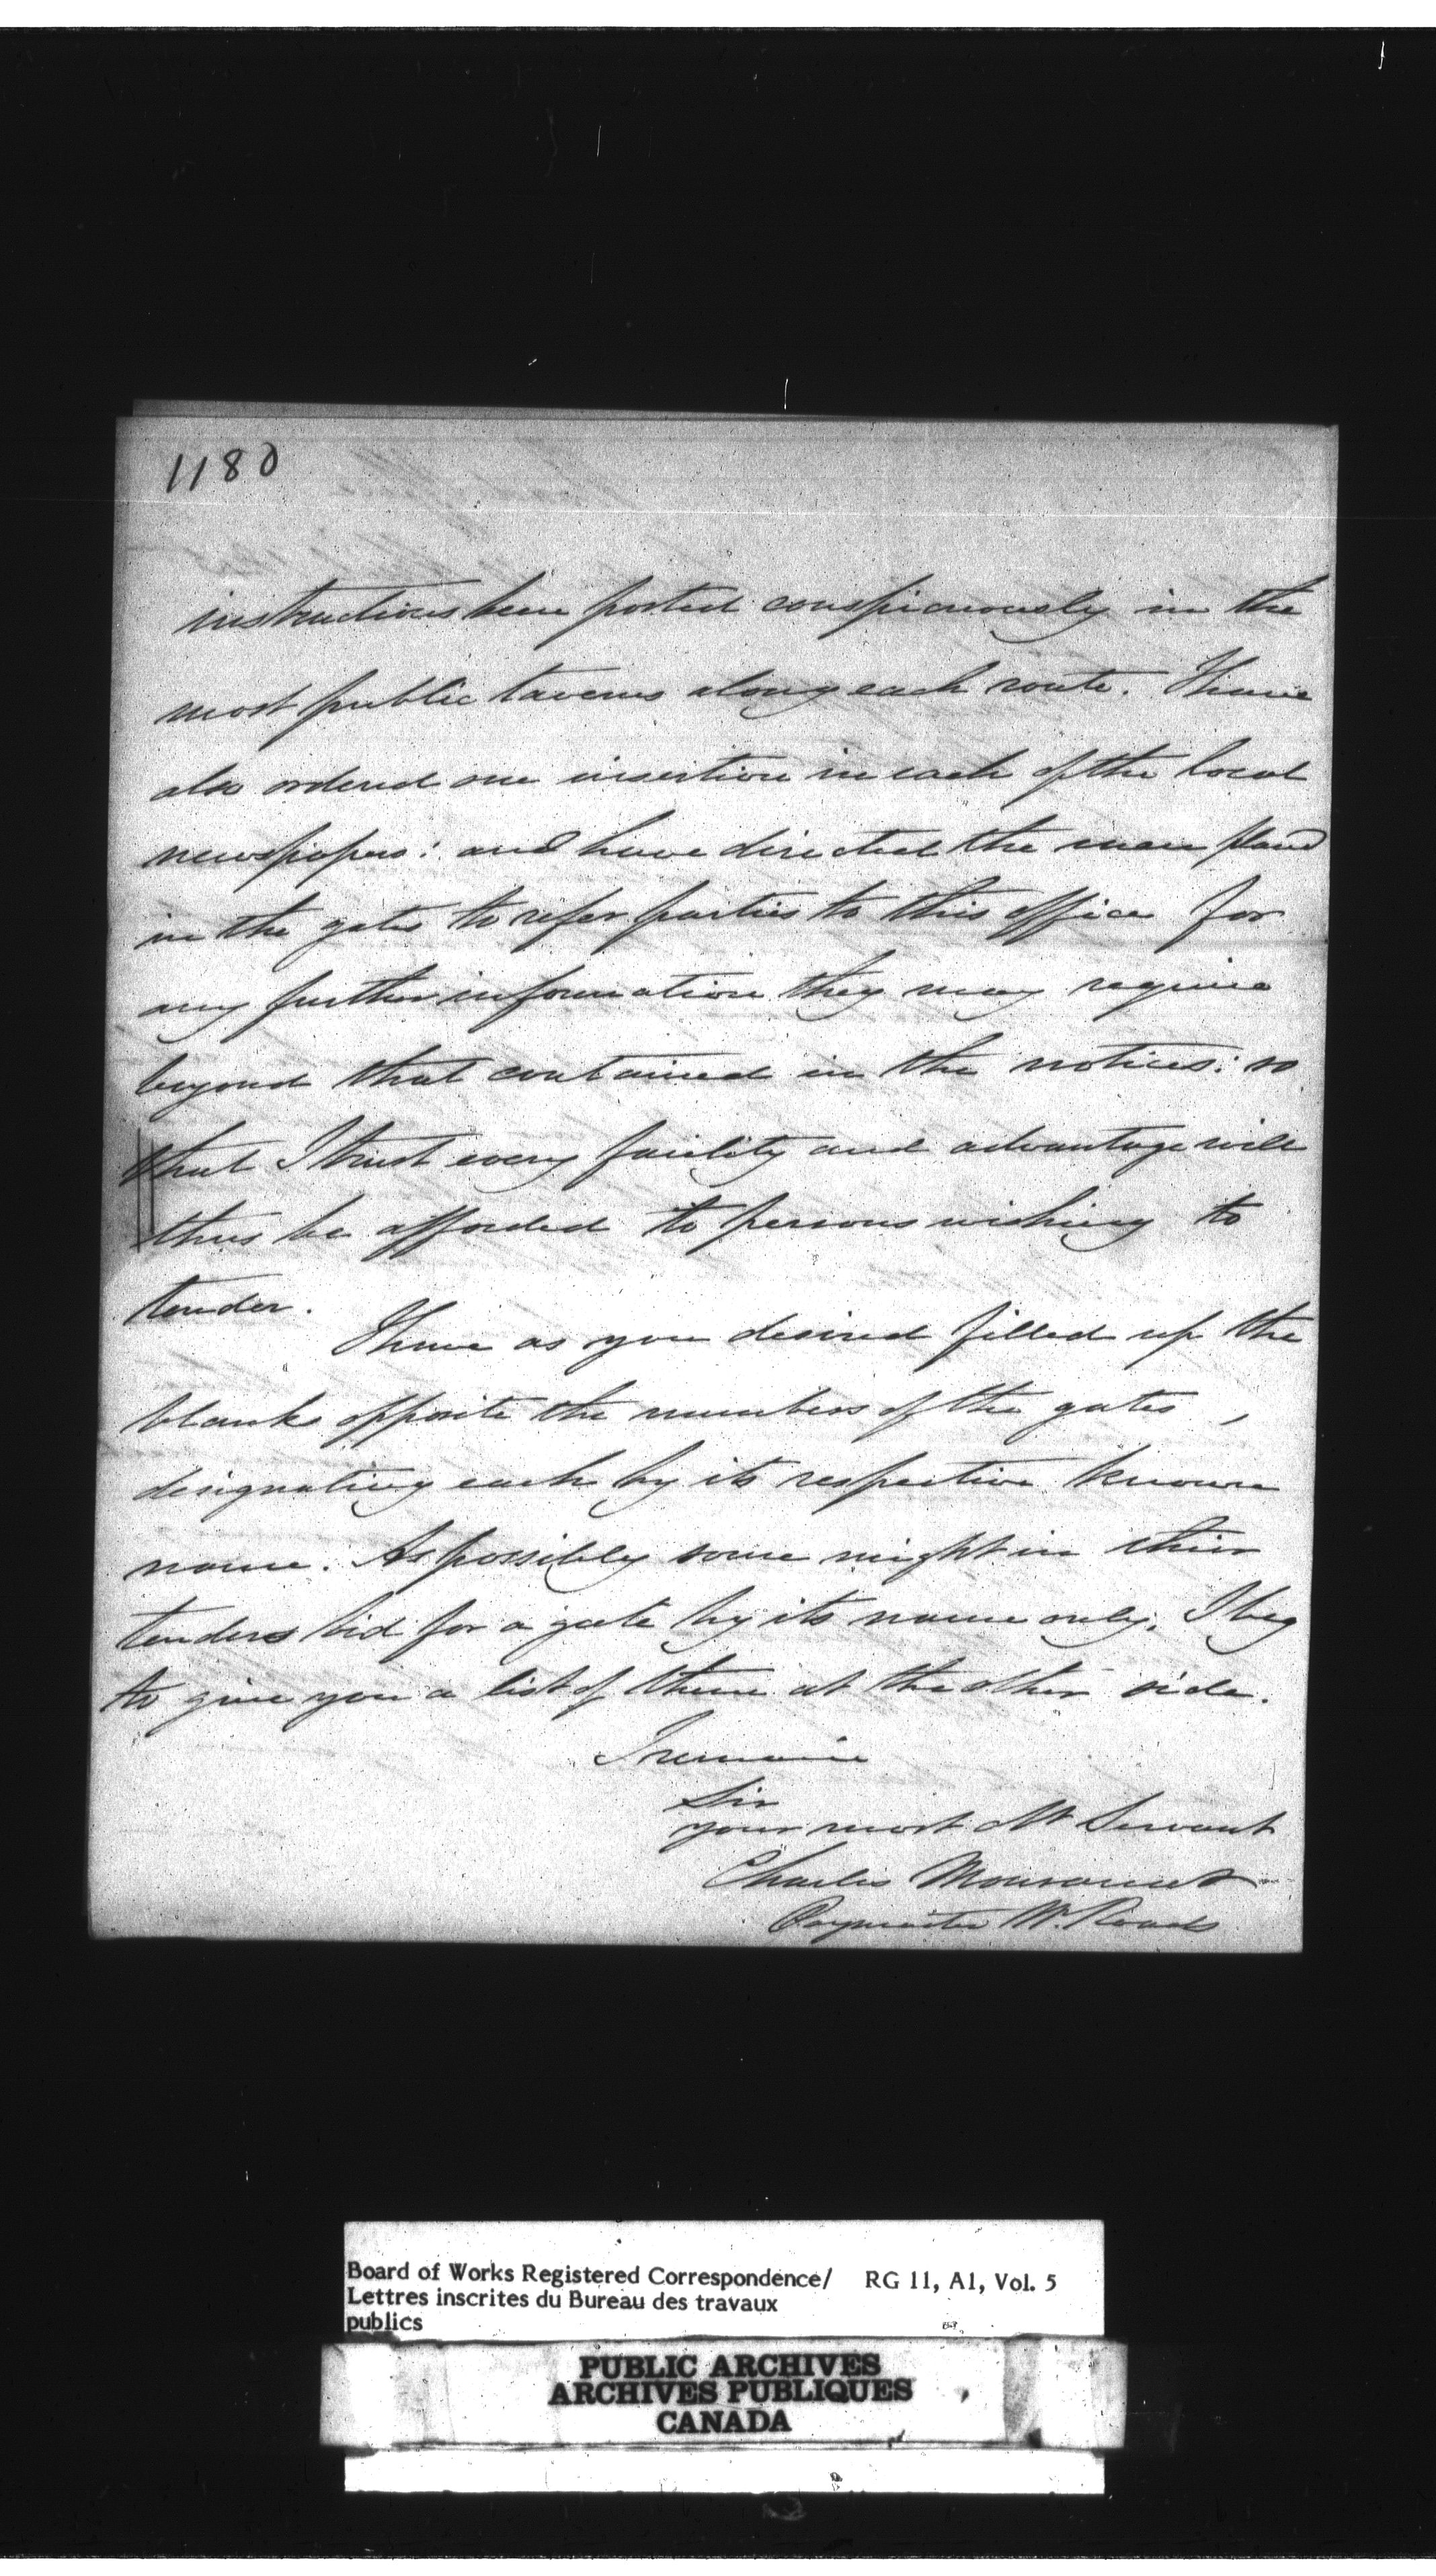 1180
instructions been posted conspicuously in the
most public taverns along each route. I have
also ordered one insertion in each of the local
newspapers: and have directed the men placed
in the gates to refer parties to this office for
any further information they may require
beyond that contained in the notices: so
that I trust every facility and advantage will
thus be afforded to persons wishing to
tender.
I have as you desired filled up the
blanks opposite the numbers of the gates,
designating each by its respective known
name. As possibly some might in their
tenders bid for a gate by its name only. I beg
to give you a list of them at the other side.
I remain
Sir
your most Obt Servant
Charles
Paymaster W. Roads
Board of Works Registered Correspondence/ RG 11, A1, Vol. 5
Lettres inscrites du Bureau des travaux
publics
PUBLIC ARCHIVES
ARCHIVES PUBLIQUES
CANADA